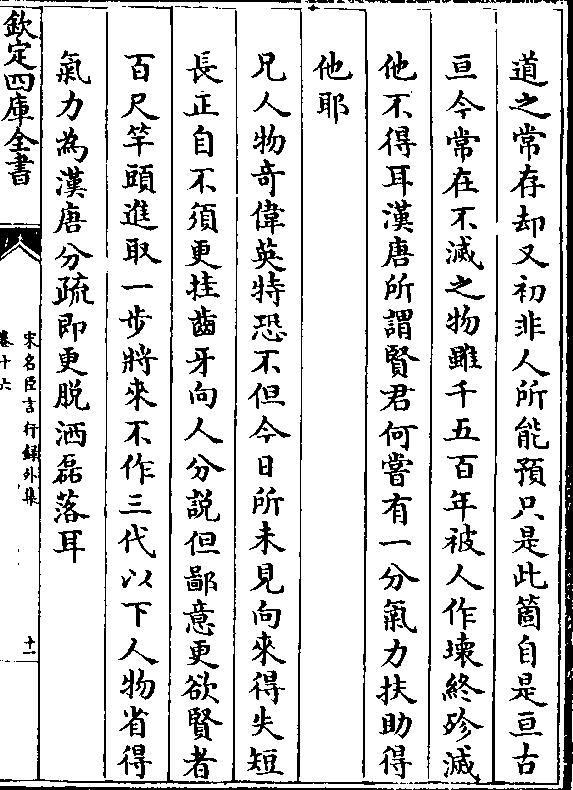 道之常存却又初非人所能預只是此箇自是亘古
亘今常在不滅之物雖千五百年被人作壞終殄滅
他不得耳漢唐所謂賢君何嘗有一分氣力扶助得
他耶
兄人物奇偉英特恐不但今日所未見向來得失短
長正自不須更挂齒牙向人分説但鄙意更欲賢者
百尺竿頭進取一步將來不作三代以下人物省得
氣力為漢唐分疏即更脱洒磊落耳
欽定四庫全書
宋名臣言行録外集
卷十六
十二